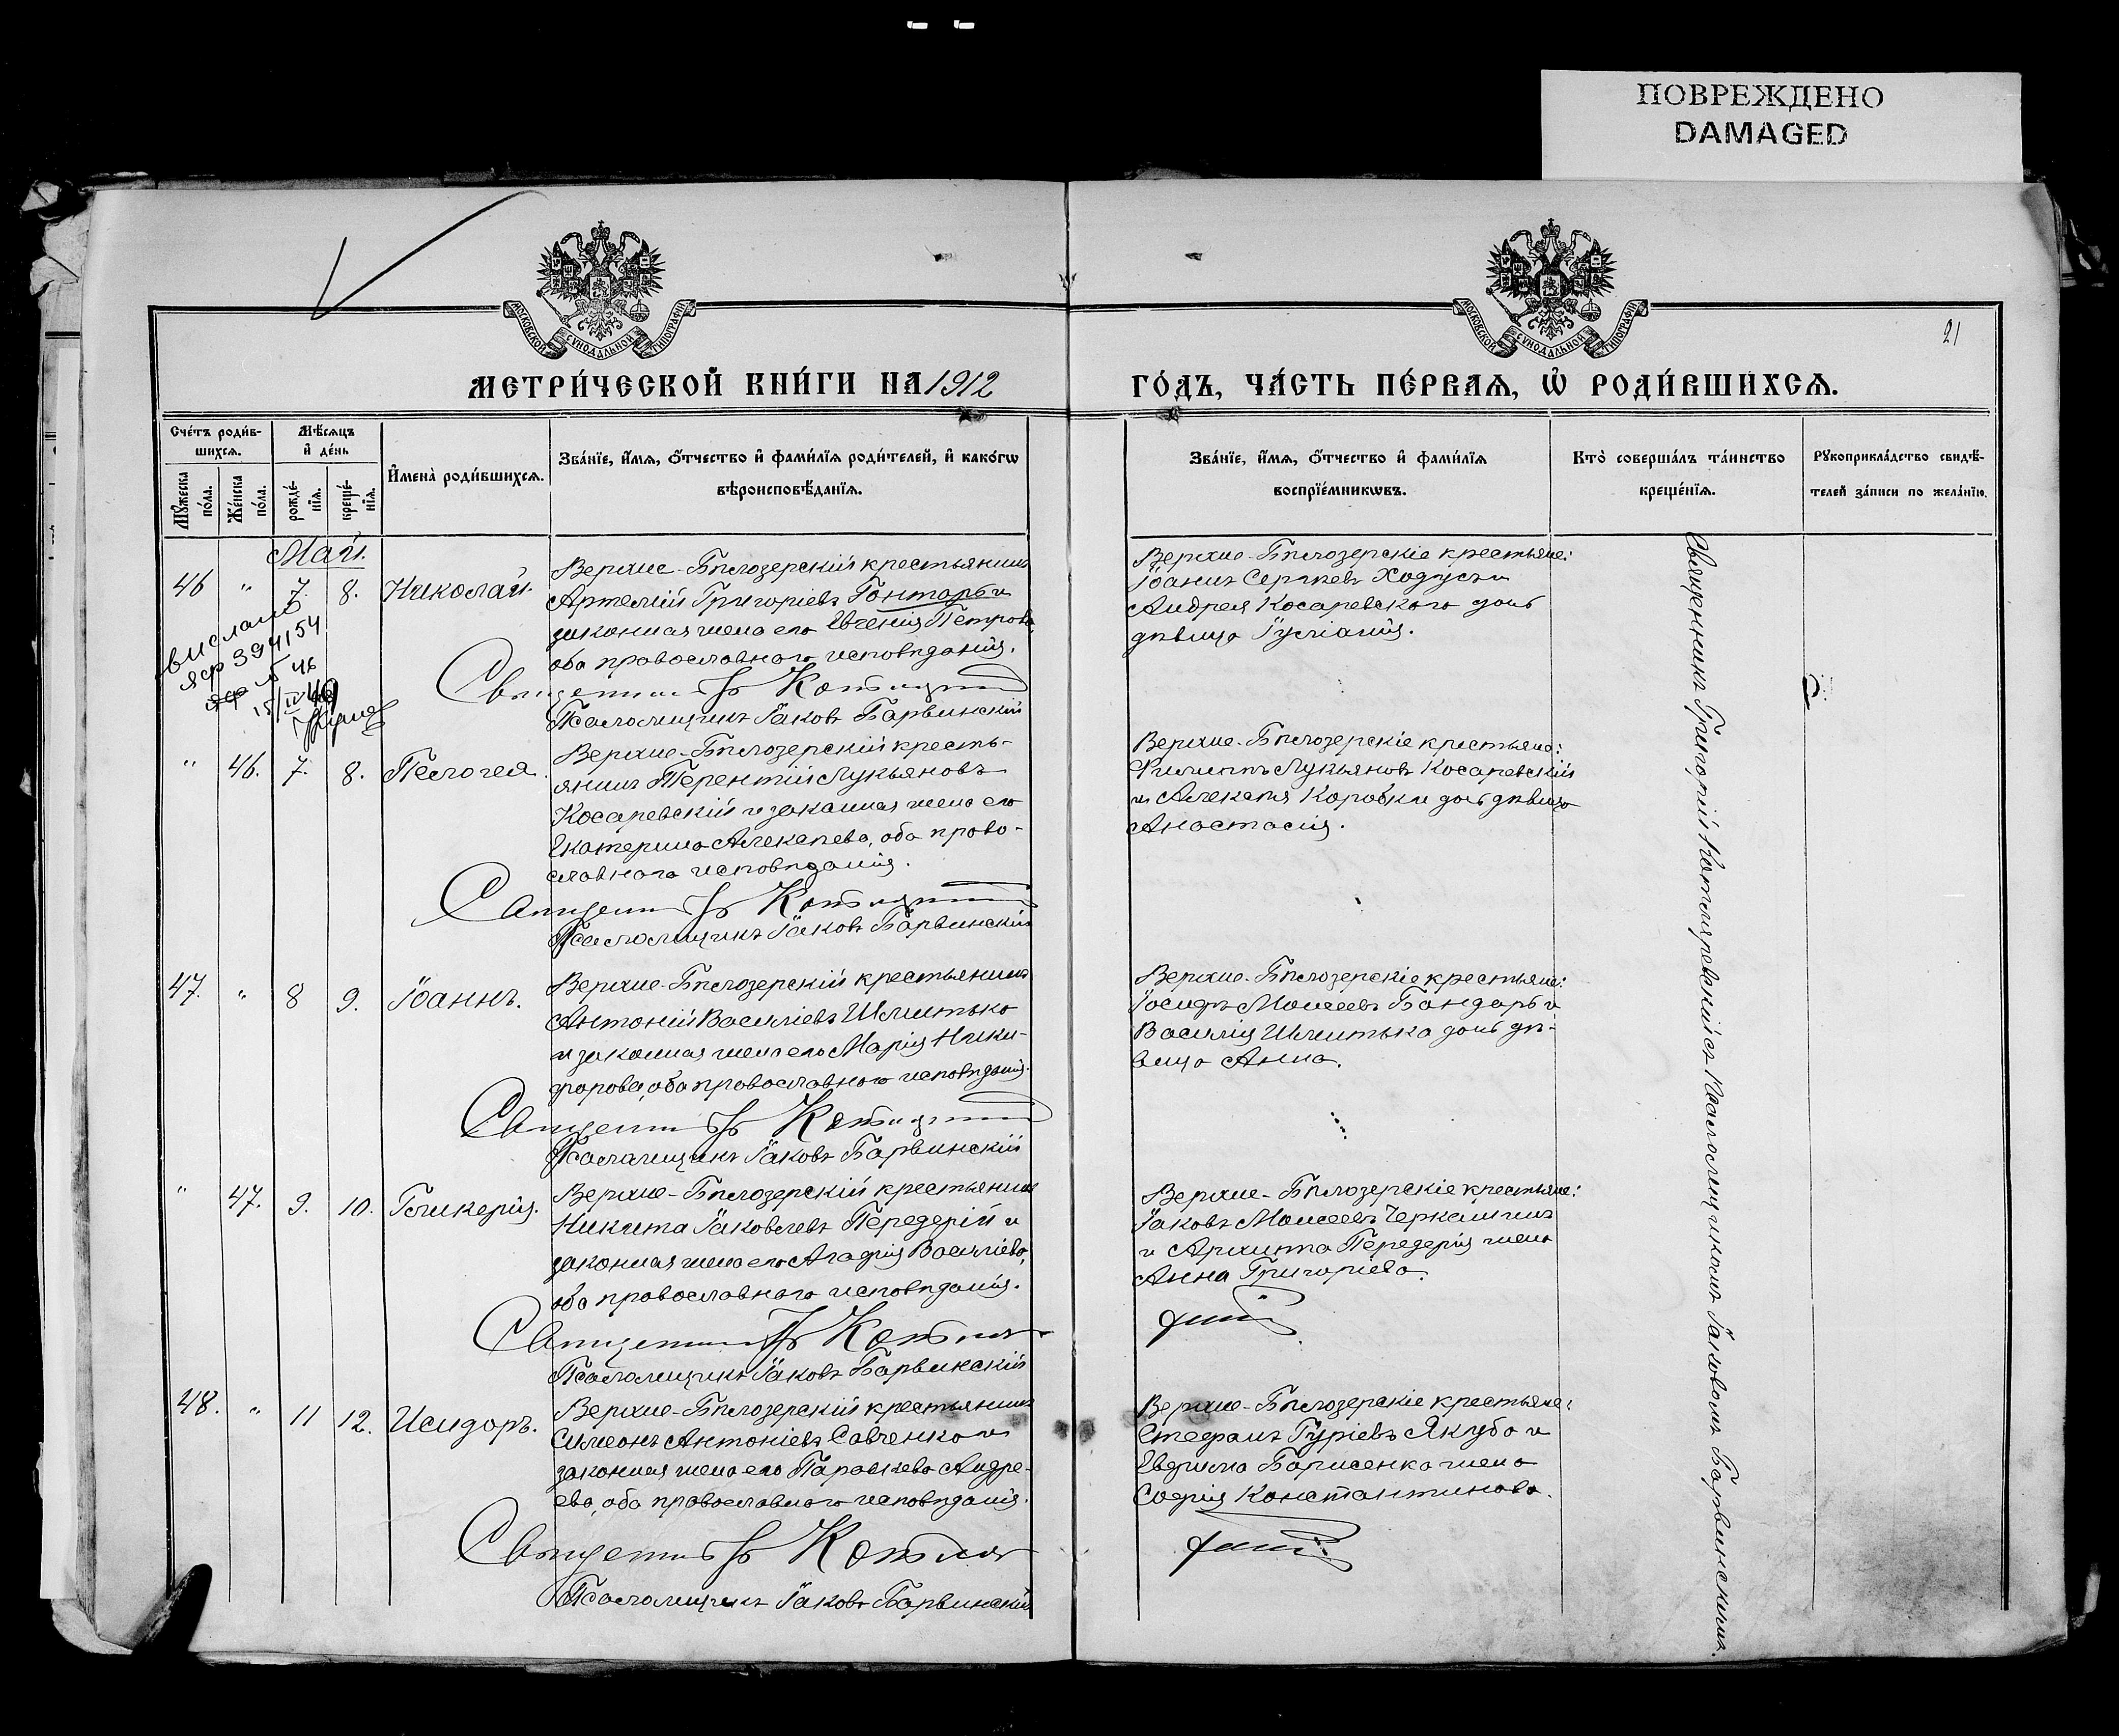 ПОВРЕЖДЕНО
DAMAGED
МОСКОВСКОЙ СУНОДАЛЬНОЙ ТИПОГРАФІИ
МОСКОВСКОЙ СУНОДАЛЬНОЙ ТИПОГРАФІИ
21
МЕТРИ́ЧЕСКОЙ КНИ́ГИ НА 1912
ГО́ДЪ, ЧА́СТЬ ПЕ́РВАѦ, Ѽ РОДИ́ВШИХСѦ.
Сче́тъ роди́в-
шихсѧ.
Мѣ́сѧцъ
и҆ де́нь
Мꙋ́жеска
по́ла.
Же́нска
по́ла.
рожде́-
нїѧ.
креще́-
нїѧ.
И҆мена̀ роди́вшихсѧ.
Зва́нїе, и҆́мѧ, ѻ҆́тчество и҆ фами́лїѧ роди́телей, и҆ како́гѡ
вѣроисповѣ́данїѧ.
Зва́нїе, и҆́мѧ, ѻ҆́тчество и҆ фами́лїѧ
воспрїе́мникѡвъ.
Кто̀ соверша́лъ та́инство
креще́нїѧ.
Рꙋкоприкла́дство свидѣ́-
телей за́писи по жела́нїю.
Май.
46 " 7. 8. Николай.
Верхне-Бѣлозерскій крестьянинъ
Артемій Григоріевъ Гонтарь и
законная жена его Евгенія Петрова,
оба православнаго исповѣданія.
Священникъ Гр Котляревскій
Псаломщикъ Іаковъ Барвинскій
Верхне-Бѣлозерскіе крестьяне:
Іоаннъ Сергѣевъ Ходусъ и
Андрея Косаревскаго дочь
дѣвица Іуліанія.
вислано
яф 394154
15/IV 46
" 46. 7. 8. Пелагея.
Верхне-Бѣлозерскій кресть-
янинъ Терентій Лукьяновъ
Косаревскій и законная жена его
Екатерина Алексѣева, оба право-
славнаго исповѣданія.
Священникъ Гр Котляревскій
Псаломщикъ Іаковъ Барвинскій
Верхне-Бѣлозерскіе крестьяне:
Филиппъ Лукьяновъ Косаревскій
и Алексѣя Коробки дочь дѣвица
Анастасія.
47. " 8 9. Іоаннъ.
Верхне-Бѣлозерскій крестьянинъ
Антоній Василіевъ Шлитько
и законная жена его Марія Ники-
форова, оба православнаго исповѣданія.
Священникъ Гр Котляревскій
Псаломщикъ Іаковъ Барвинскій
Верхне-Бѣлозерскіе крестьяне:
Іосифъ Моисеевъ Бондарь и
Василія Шлитька дочь дѣ-
вица Анна.
" 47. 9. 10. Гликерія.
Верхне-Бѣлозерскій крестьянинъ
Никита Іаковлевъ Передерій и
законная жена его Агафія Василіева,
оба православнаго исповѣданія.
Священникъ Гр Котляр
Псаломщикъ Іаковъ Барвинскій
Верхне-Бѣлозерскіе крестьяне:
Іаковъ Моисеевъ Черкашинъ
и Архипа Передерія жена
Анна Григоріева.
48. " 11 12. Исидоръ.
Верхне-Бѣлозерскій крестьянинъ
Симеонъ Антоніевъ Савченко и
законная жена его Параскева Андре-
ева, оба православнаго исповѣданія.
Священникъ Гр Котляр
Псаломщикъ Іаковъ Барвинскій
Верхне-Бѣлозерскіе крестьяне:
Стефанъ Гуріевъ Якуба и
Евфима Борисенка жена
Софія Константинова.
Священникъ Григорій Котляревскій съ псаломщикомъ Іаковомъ Барвинскимъ.